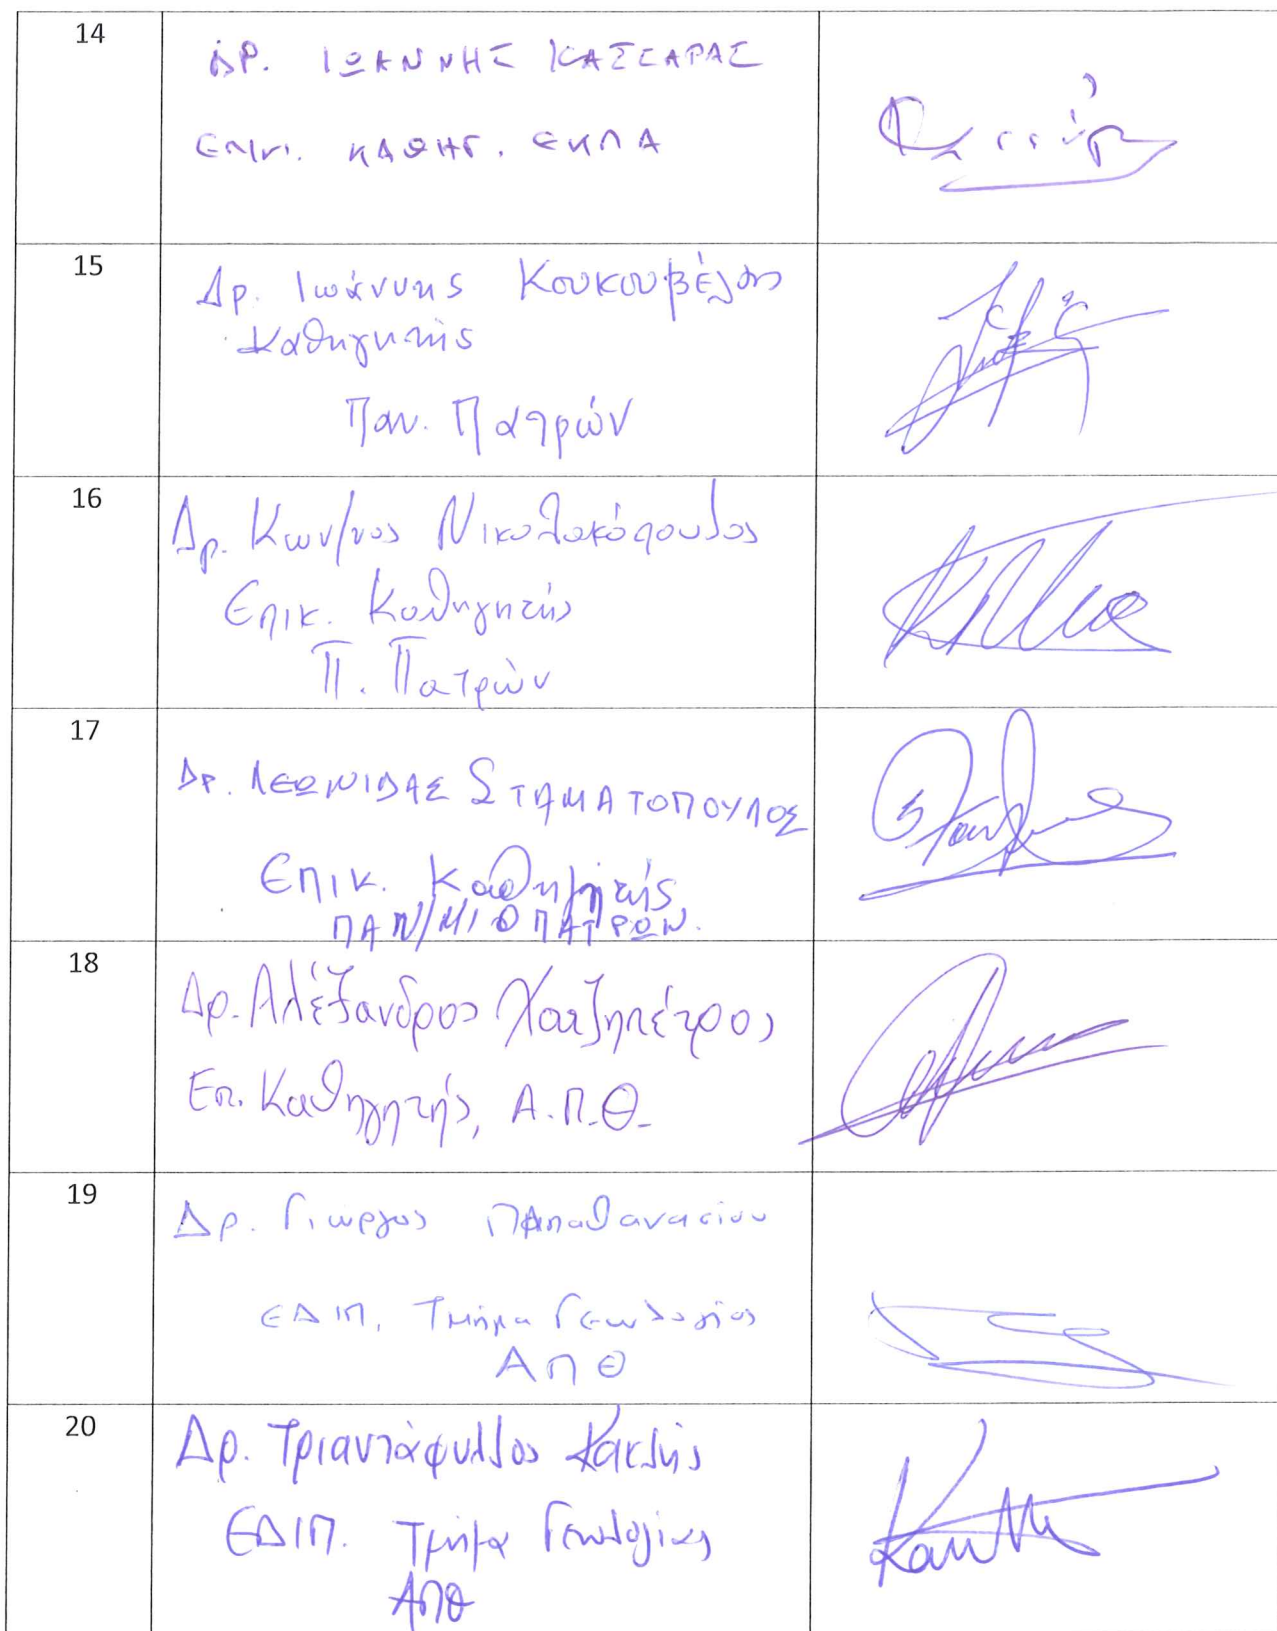 14
ΔΡ. ΙΩΑΝΝΗΣ ΚΑΣΣΑΡΑΣ
ΕΠΙΚ. ΚΑΘΗΓ. ΕΚΠΑ
15
Δρ. Ιωάννης Κουκουβέλας
Καθηγητής
Παν. Πατρών
16
Δρ. Κων/νος Νικολακόπουλος
Επικ. Καθηγητής
Π. Πατρών
17
ΔΡ. ΛΕΩΝΙΔΑΣ ΣΤΑΜΑΤΟΠΟΥΛΟΣ
Επικ. Καθηγητής
ΠΑΝ/ΜΙΟ ΠΑΤΡΩΝ.
18
Δρ. Αλέξανδρος Χατζηπέτρος
Επ. Καθηγητής, Α.Π.Θ.
19
Δρ. Γιωργος Παπαθανασίου
ΕΔΙΠ, Τμήμα Γεωλογίας
ΑΠΘ
20
Δρ. Τριαντάφυλλος Κακλής
ΕΔΙΠ. Τμήμα Γεωλογίας
ΑΠΘ